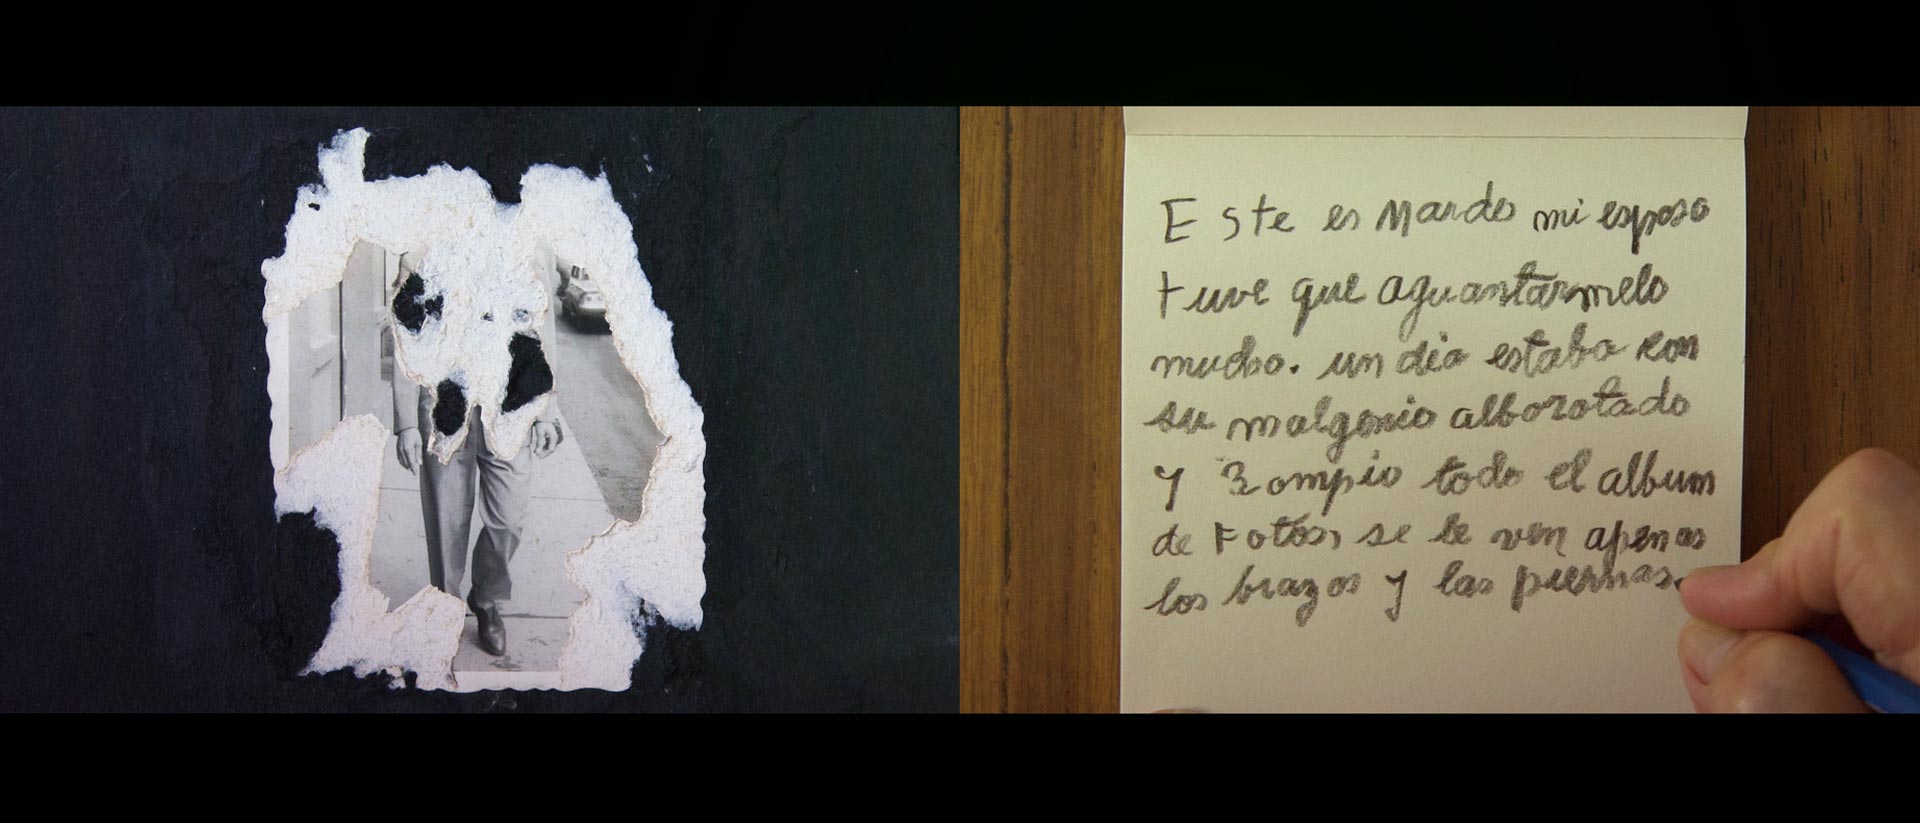 Este es Mardo mi esposo
tuve que aguantarmelo
mucho. un dia estaba con
su malgenio alborotado
y Rompio todo el album
de Fotos, se le ven apenas
los brazos y las piernas.